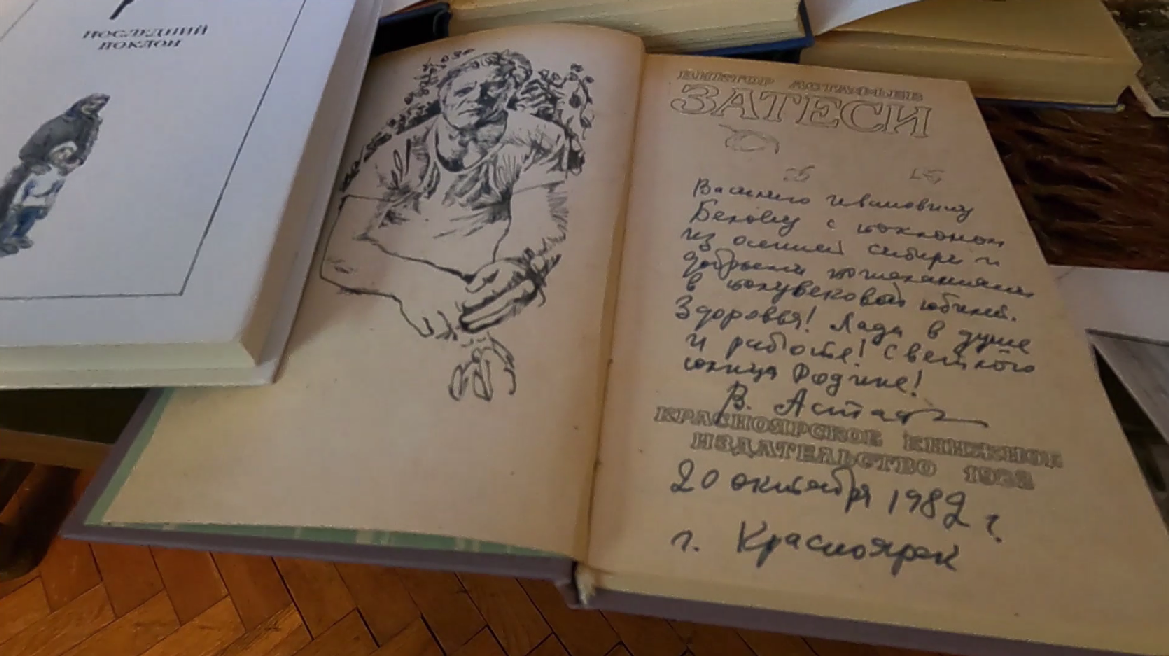 ПОСЛЕДНИЙ
ПОКЛОН
ВИКТОР АСТАФЬЕВ
ЗАТЕСИ
Василию Ивановичу
Белову с поклоном
из осенней Сибири и
добрыми пожеланиями
в полувековой юбилей.
Здоровья! Лада в душе
и работе! Светлого
солнца Родине!
В. Астаф
КРАСНОЯРСКОЕ КНИЖНОЕ
ИЗДАТЕЛЬСТВО 1982
20 октября 1982 г.
г. Красноярск